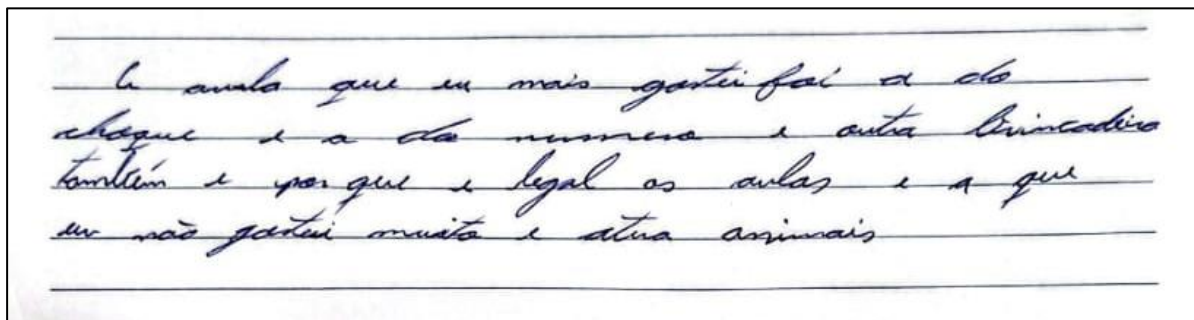 A auala que eu mais gostei foi a do
choque e a do numero e outra brincadeira
também e por que e legal as aulas e a que
eu não gostei muito e atua animais